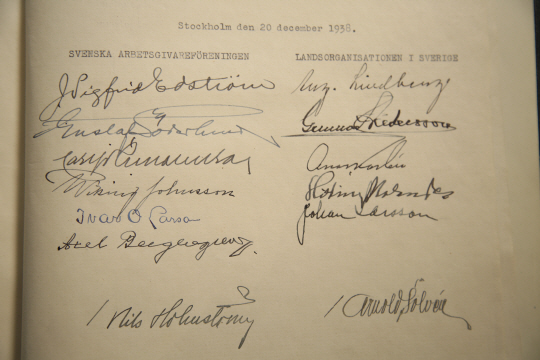 Stockholm den 20 december 1938.
SVENSKA ARBETSGIVAREFÖRENINGEN
J Sigfrid Edström
Gustaf Söderlund
Wiking Johnsson
Ivar O Larson
Axel
/ Nils Holmström
LANDSORGANISATIONEN I SVERIGE
Aug. Lindberg
Gunnar
Johan Larsson
/ Arnold Sölvén